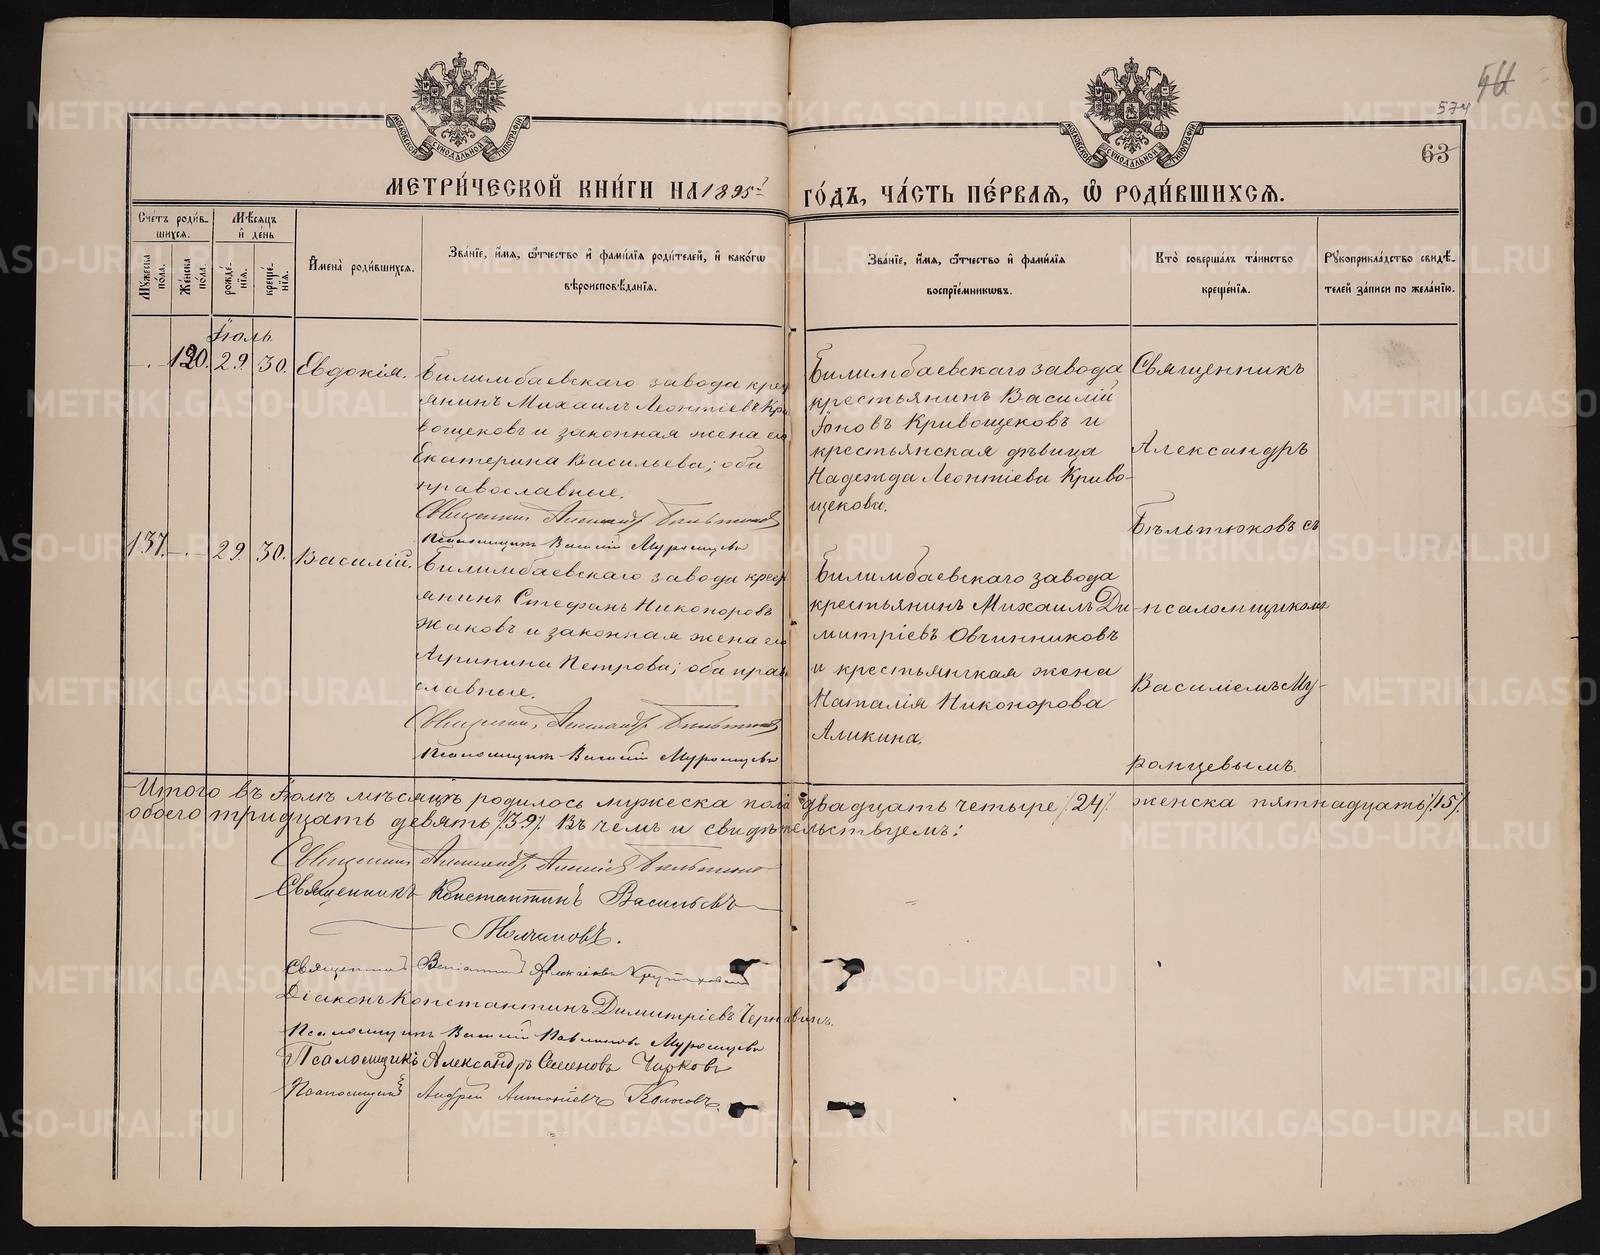 54
574
63
МОСКОВСКОЙ СѴНОДАЛЬНОЙ ТИПОГРАФІИ
МОСКОВСКОЙ СѴНОДАЛЬНОЙ ТИПОГРАФІИ
МЕТРИ́ЧЕСКОЙ КНИ́ГИ НА 1895й ГО́ДЪ, ЧА́СТЬ ПЕ́РВАЯ, Ѽ РОДИ́ВШИХСЯ.
Сче́тъ роди́в-
шихся.
Мꙋ́жеска по́ла.
Же́нска по́ла.
Мѣ́сяцъ и де́нь
рожде́-нїя.
креще́-нїя.
Имена̀ роди́вшихся.
Зва́нїе, и́мя, ѻ́тчество и фами́лїя роди́телей, и како́гѡ
вѣроисповѣ́данїя.
Зва́нїе, и́мя, ѻ́тчество и фами́лїя
воспрїе́мникѡвъ.
Кто̀ соверша́лъ та́инство
креще́нїя.
Рꙋкоприкла́дство свидѣ́-
телей за́писи по жела́нїю.
Іюль
—. 120. 29. 30. Евдокія.
Билимбаевскаго завода крес
янинъ Михаилъ Леонтіевъ Кри
вощековъ и законная жена его
Екатерина Васильева; оба
православные.
Священникъ Александръ Бѣльтюковъ
Псаломщикъ Василій Муромцевъ
Билимбаевскаго завода
крестьянинъ Василій
Іоновъ Кривощековъ и
крестьянская дѣвица
Надежда Леонтіева Криво-
щекова.
Священникъ
Александръ
Бѣльтюковъ съ
псаломщикомъ
Василіемъ Му-
ромцевымъ.
137. —. 29. 30. Василій.
Билимбаевскаго завода крест
янинъ Стефанъ Никоноровъ
Жаковъ и законная жена его
Агрипина Петрова; оба право
славные.
Священникъ Александръ Бѣльтюковъ
Псаломщикъ Василій Муромцевъ
Билимбаевскаго завода
крестьянинъ Михаилъ Ди-
митріевъ Овчинниковъ
и крестьянская жена
Наталія Никонорова
Аликина.
Итого въ Іюлѣ мѣсяцѣ родилось мужеска пола двадцать четыре /24/. женска пятнадцать /15/.
обоего тридцать девять /39/. Въ чемъ и свидѣтельствуемъ:
Священникъ Александръ Алексіевъ Бѣльтюковъ
Священникъ Константинъ Васильевъ
Молчановъ.
Священникъ Веніаминъ Алексіевъ
Діаконъ Константинъ Димитріевъ Чернавинъ.
Псаломщикъ Василій Павловъ Муромцевъ
Псаломщикъ Александръ Семеновъ Чирковъ
Псаломщикъ Андрей Антоніевъ Колосовъ.
METRIKI.GASO-URAL.RU